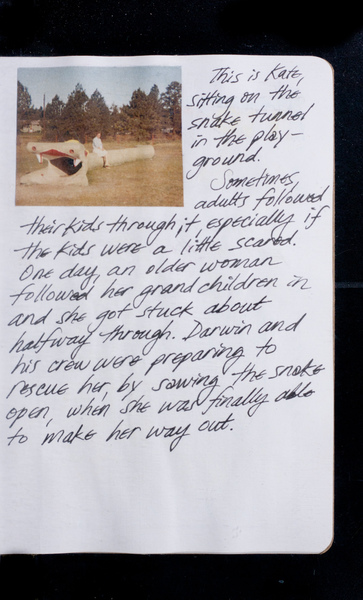 This is Kate,
sitting on the
snake tunnel
in the play-
ground.
Sometimes,
adults followed
their kids through it, especially if
the kids were a little scared.
One day, an older woman
followed her grandchildren in
and she got stuck about
halfway through. Darwin and
his crew were preparing to
rescue her, by sawing the snake
open, when she was finally able
to make her way out.